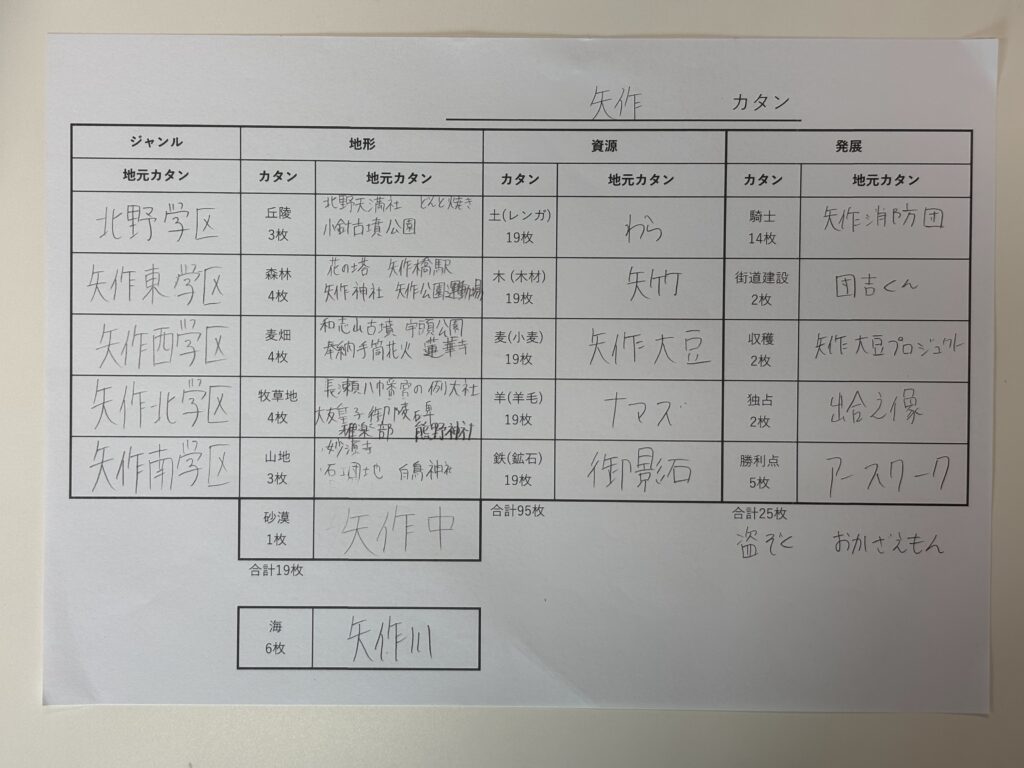 矢作 カタン
ジャンル 地形 資源 発展
地元カタン カタン 地元カタン カタン 地元カタン カタン 地元カタン
北野学区 丘陵 3枚 北野天満社 どんど焼き 土(レンガ) 19枚 わら 騎士 14枚 矢作消防団
小針古墳公園
矢作東学区 森林 4枚 花の塔 矢作橋駅 木(木材) 19枚 矢竹 街道建設 2枚 団吉くん
矢作神社 矢作公園運動場
矢作西学区 麦畑 4枚 和志山古墳 宇頭公園 麦(小麦) 19枚 矢作大豆 収穫 2枚 矢作大豆プロジェクト
奉納手筒花火 蓮華寺
矢作北学区 牧草地 4枚 長瀬八幡宮の例大社 羊(羊毛) 19枚 ナマズ 独占 2枚 出合之像
大友皇子御陵
雅楽部 熊野神社
矢作南学区 山地 3枚 妙源寺 鉄(鉱石) 19枚 御影石 勝利点 5枚 アースワーク
石工団地 白鳥神社
砂漠 1枚 矢作中 合計95枚 合計25枚
盗ぞく おかざえもん
合計19枚
海 6枚 矢作川